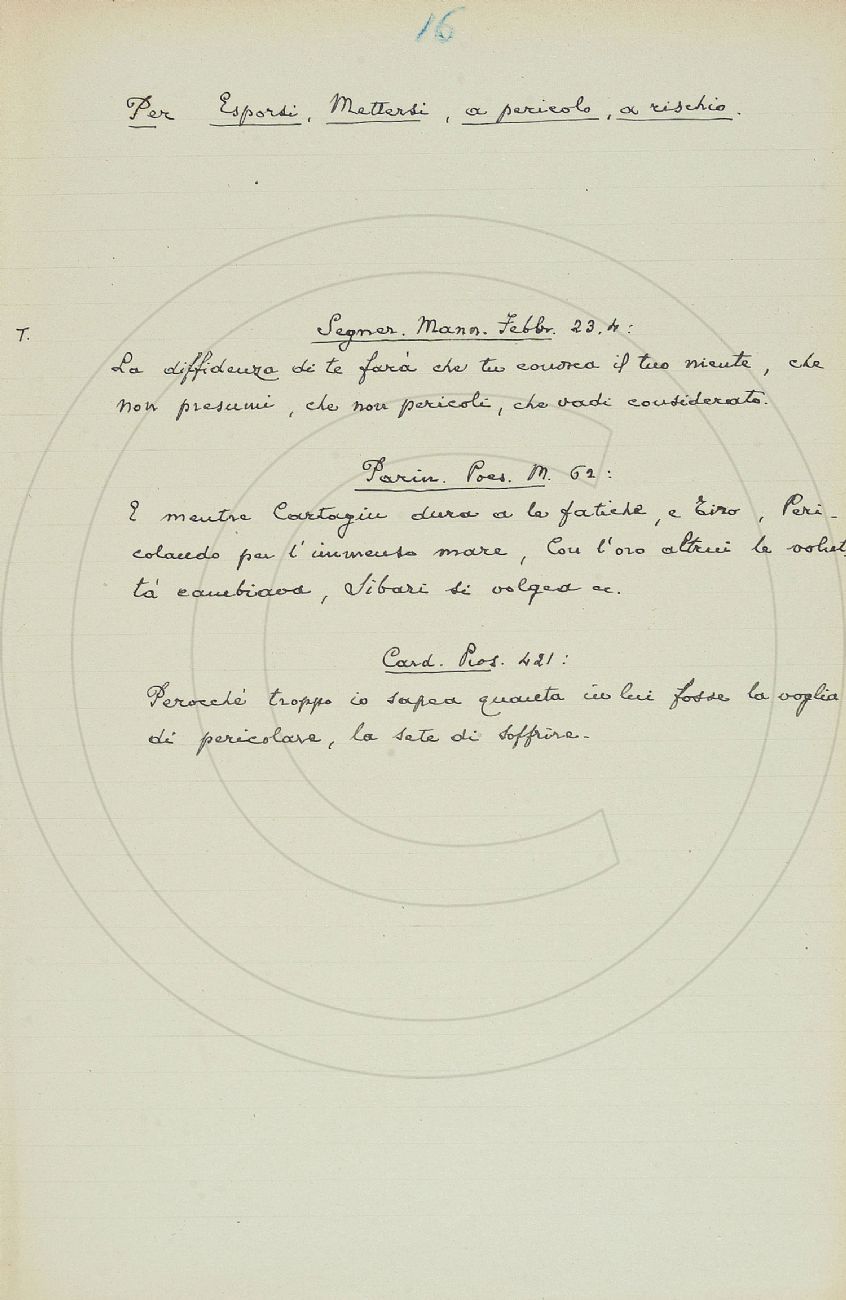 16
Per Esporsi, Mettersi, a pericolo, a rischio.
T.
Segner. Mann. Febbr. 23.4:
La diffidenza di te farà che tu conosca il tuo niente, che
non presumi, che non pericoli, che vadi considerato.
Parin. Poes. M. 62:
E mentre Cartagin dura a le fatiche, e Tiro, Peri-
colando per l'immenso mare, Con l'oro altrui le volut,
tà cambiava, Sibari si volgea ec.
Card. Pros. 421:
Perocché troppo io sapea quanta in lui fosse la voglia
di pericolare, la sete di soffrire.